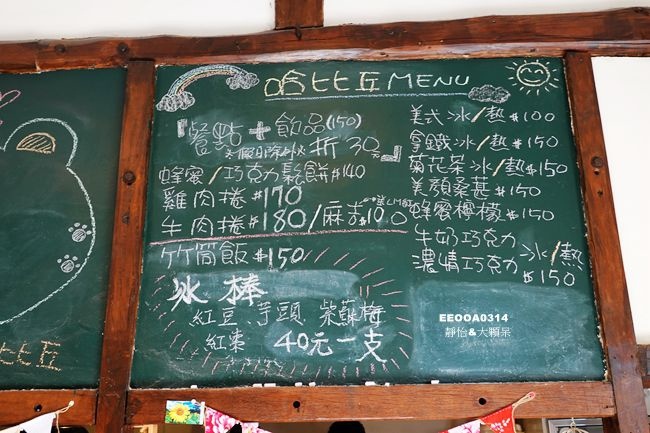 哈比丘MENU
『餐點+飲品(150)
*假日除外* 折30元』
蜂蜜/巧克力鬆餅$140
雞肉捲$170
牛肉捲$180/麻吉10.0
竹筒飯$150
冰棒
紅豆 芋頭 紫蘇梅
紅棗 40元一支
美式冰/熱$100
拿鐵冰/熱$150
菊花茶冰/熱$150
美顏桑葚$150
蜂蜜檸檬$150
牛奶巧克力
濃情巧克力 冰/熱$150
EEOOA0314
靜怡&大顆呆
比丘